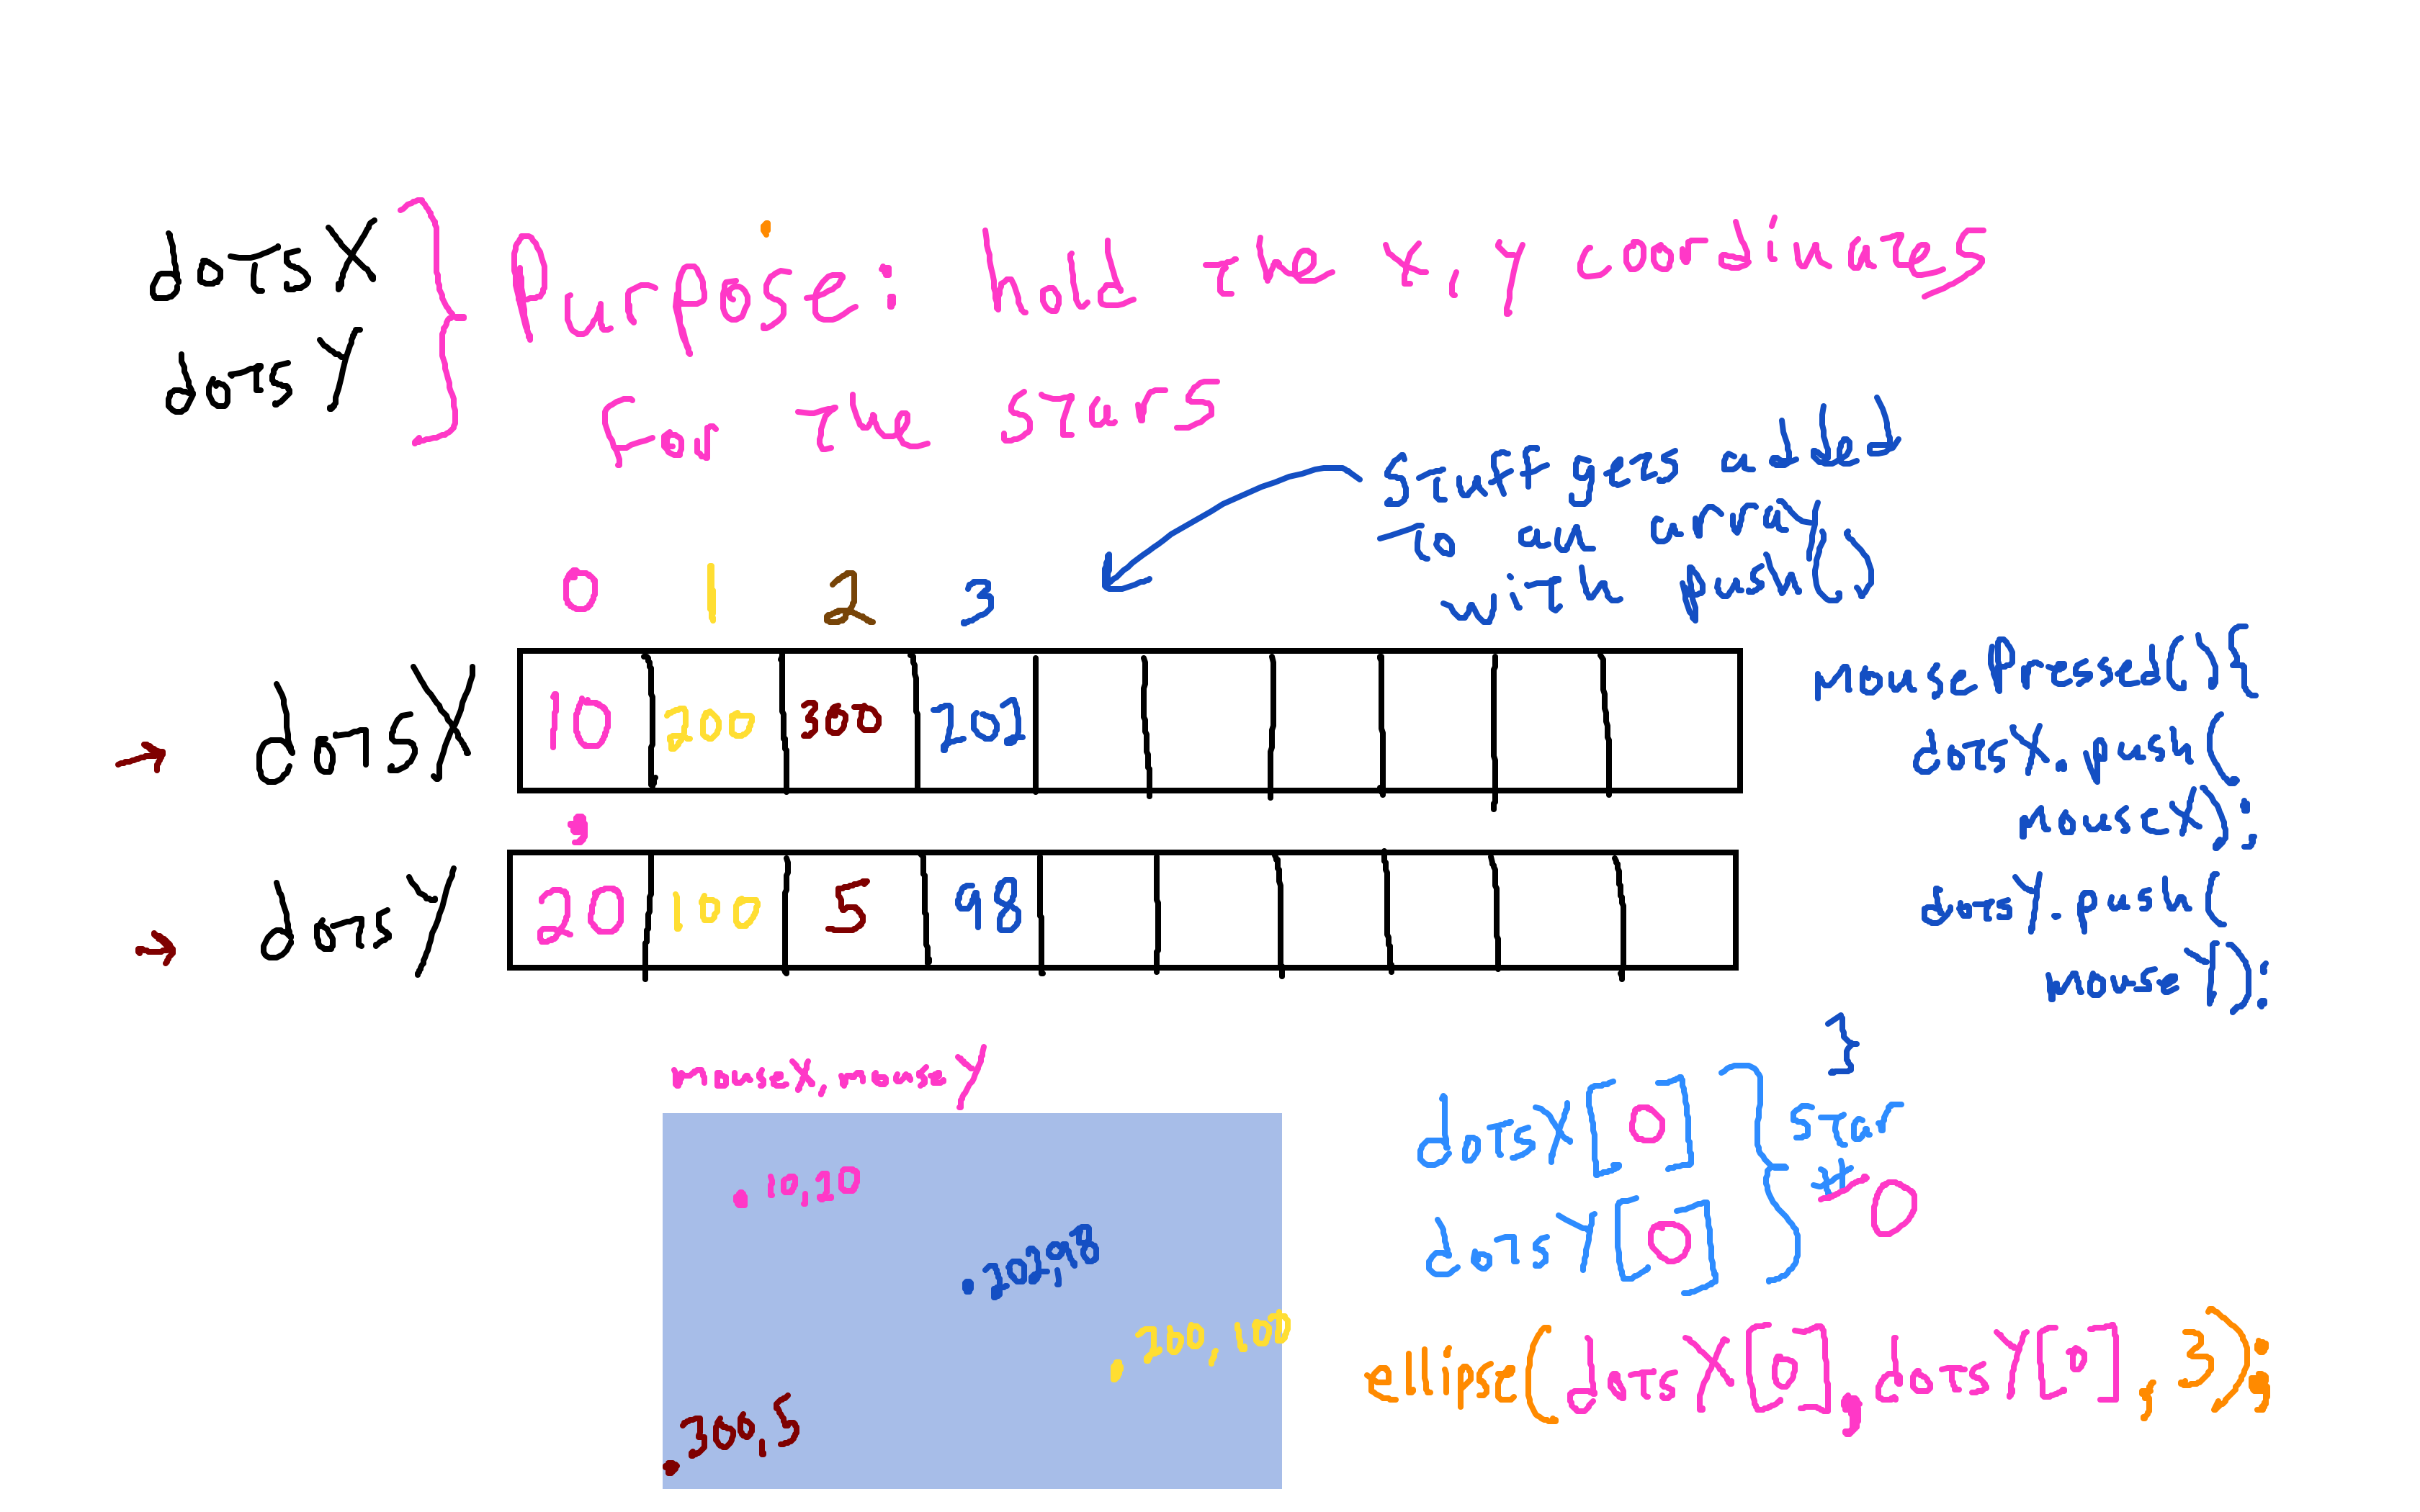 dotsX
dotsY
Purpose: hold the x, y coordinates
For the stars
stuff gets added
to an array
with push()
0 1 2 3
dotsX 10 200 300 202
dotsY 20 100 5 98
mousePressed(){
dotsX.push(
mouseX);
dotsY.push(
mouseY);
}
mouseX, mouseY
. 10,20
. 202,98
. 200,100
. 300,5
dotsX[0]
dotsY[0]
star
# 0
ellipse(dotsX[0], dotsY[0], 3);